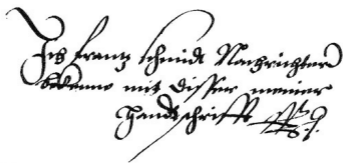 Ich Frantz Schmidt Nachrichter
bekenne mit disser meiner
Handtschrifft